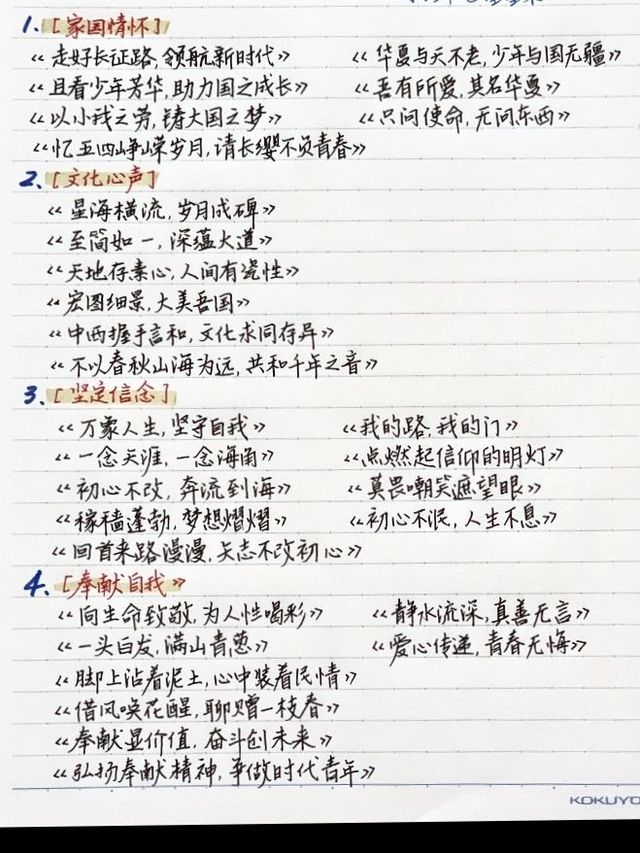 1、[家国情怀]
《走好长征路,领航新时代》 《华夏与天不老,少年与国无疆》
《且看少年芳华,助力国之成长》 《吾有所爱,其名华夏》
《以小我之劳,铸大国之梦》 《只问使命,无问东西》
《忆五四峥嵘岁月,请长缨不负青春》
2、[文化心声]
《星海横流,岁月成碑》
《至简如一,深蕴大道》
《天地存素心,人间有瓷性》
《宏图细景,大美吾国》
《中西握手言和,文化求同存异》
《不以春秋山海为远,共和千年之音》
3、[坚定信念]
《万象人生,坚守自我》 《我的路,我的门》
《一念天涯,一念海角》 《点燃起信仰的明灯》
《初心不改,奔流到海》 《莫畏嘲笑遮望眼》
《稼穑蓬勃,梦想熠熠》 《初心不泯,人生不息》
《回首来路漫漫,矢志不改初心》
4、[奉献自我》
《向生命致敬,为人性喝彩》 《静水流深,真善无言》
《一头白发,满山青葱》 《爱心传递,青春无悔》
《脚上沾着泥土,心中装着民情》
《借风唤花醒,聊赠一枝春》
《奉献显价值,奋斗创未来》
《弘扬奉献精神,争做时代青年》
KOKUYO